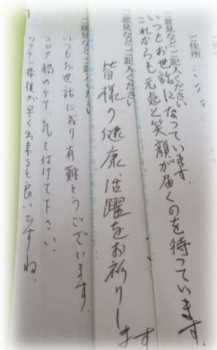 ご住所
ご意見などご記入ください
いつもお世話になっています。
これからも元気と笑顔が届くのを待っています。
皆様の健康、活躍をお祈りします
ご意見などご記入ください
いつもお世話に成り有難とうございます。
コロナ禍の 気を付けて下さい。
ワクチン接種が早く出来ると良いですね。